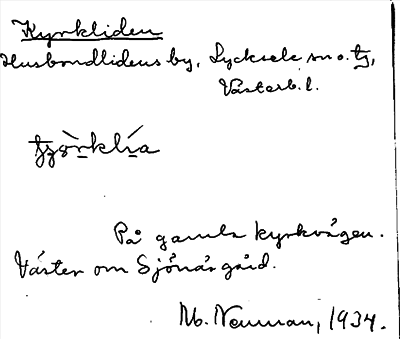 Kyrkliden
Husbondlidens by, Lycksele sn o. tg,
Västerb. l.
På gamla kyrkvägen.
Väster om Sjönäs gård.
M. Neuman, 1934.